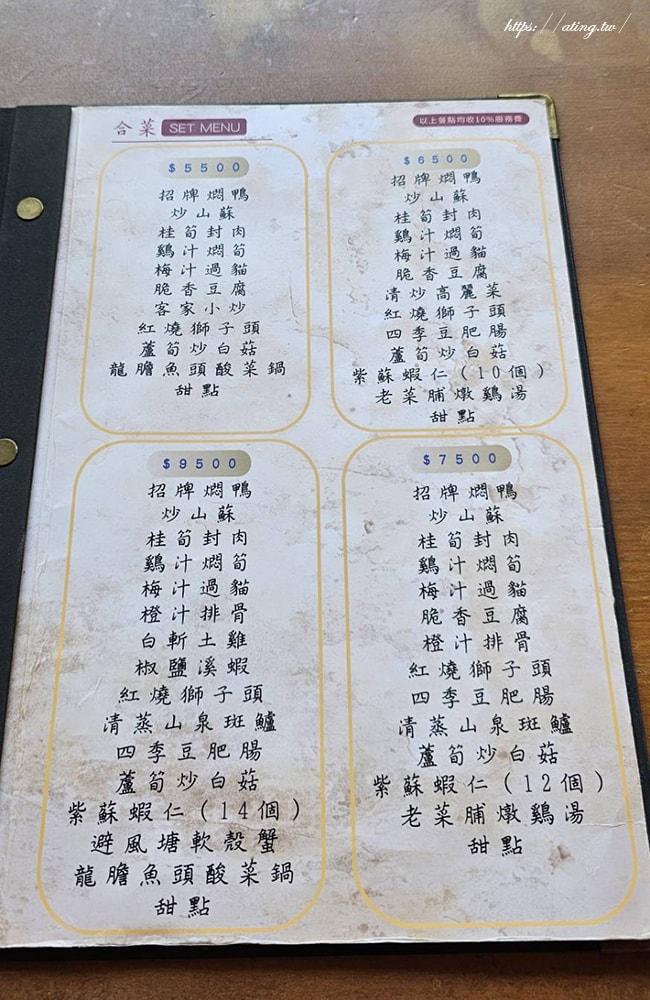 https://ating.tw/
合菜 SET MENU
以上餐點均收10%服務費
$5500
招牌燜鴨
炒山蘇
桂筍封肉
鷄汁燜筍
梅汁過貓
脆香豆腐
客家小炒
紅燒獅子頭
蘆筍炒白菇
龍膽魚頭酸菜鍋
甜點
$6500
招牌燜鴨
炒山蘇
桂筍封肉
鷄汁燜筍
梅汁過貓
脆香豆腐
清炒高麗菜
紅燒獅子頭
四季豆肥腸
蘆筍炒白菇
紫蘇蝦仁(10個)
老菜脯燉鷄湯
甜點
$9500
招牌燜鴨
炒山蘇
桂筍封肉
鷄汁燜筍
梅汁過貓
橙汁排骨
白斬土雞
椒鹽溪蝦
紅燒獅子頭
清蒸山泉斑鱸
四季豆肥腸
蘆筍炒白菇
紫蘇蝦仁(14個)
避風塘軟殼蟹
龍膽魚頭酸菜鍋
甜點
$7500
招牌燜鴨
炒山蘇
桂筍封肉
鷄汁燜筍
梅汁過貓
脆香豆腐
橙汁排骨
紅燒獅子頭
四季豆肥腸
清蒸山泉斑鱸
蘆筍炒白菇
紫蘇蝦仁(12個)
老菜脯燉鷄湯
甜點